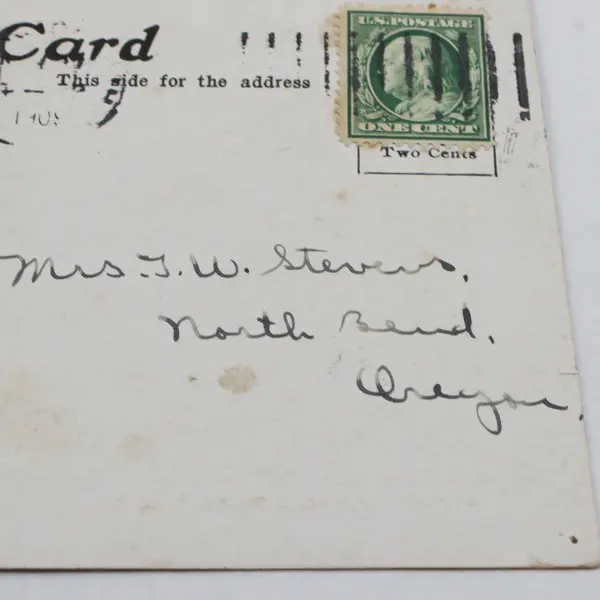 Card
This side for the address
U.S. POSTAGE
ONE CENT
Two Cents
Mrs T. W. Stevens,
North Bend,
Oregon,